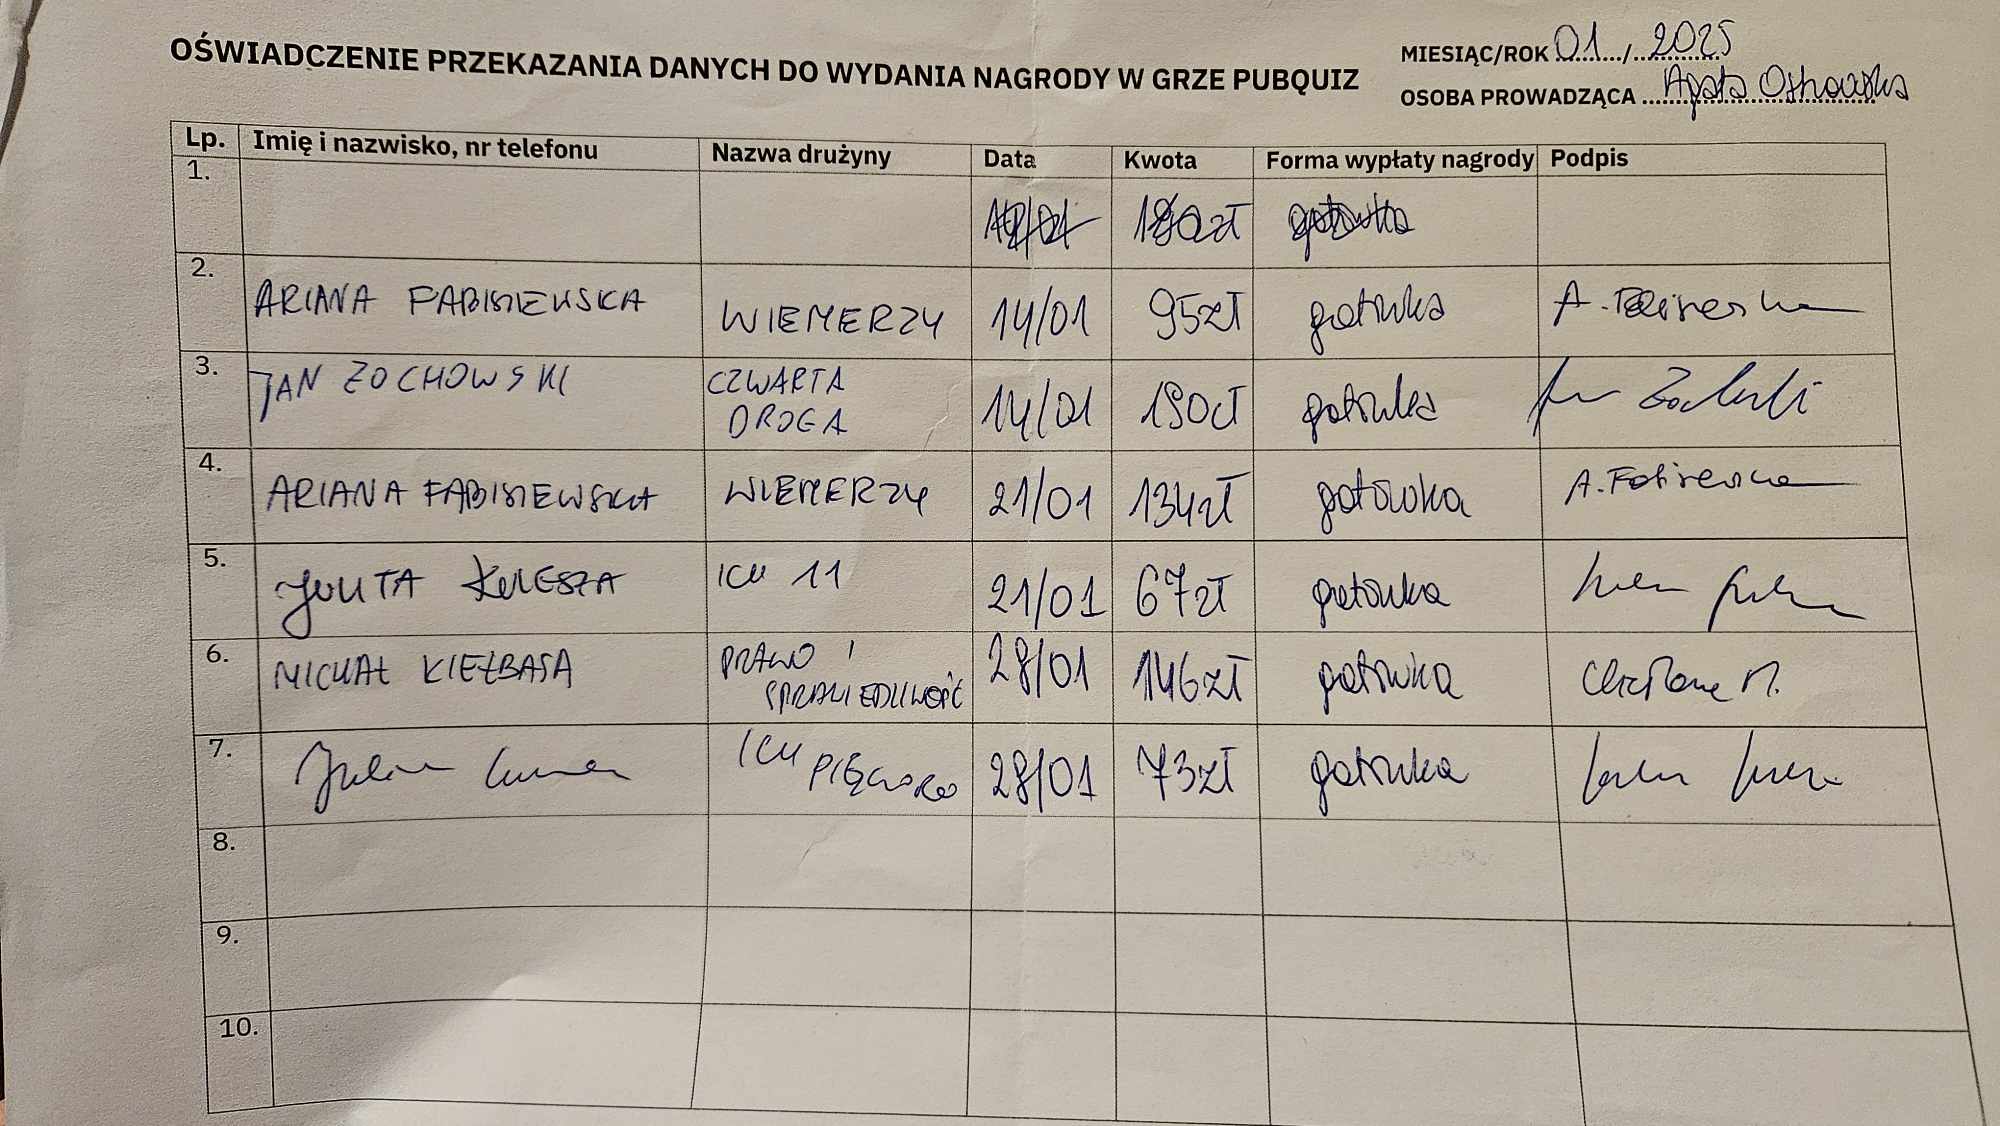 OŚWIADCZENIE PRZEKAZANIA DANYCH DO WYDANIA NAGRODY W GRZE PUBQUIZ
MIESIĄC/ROK 01 / 2025
OSOBA PROWADZĄCA Agata Ostrowska
Lp. Imię i nazwisko, nr telefonu Nazwa drużyny Data Kwota Forma wypłaty nagrody Podpis
1. 180zł gotówka
2. ARIANA FABISIEWSKA WIEMERZY 14/01 95zł gotówka
3. JAN ŻOCHOWSKI CZWARTA
DROGA 14/01 190zł gotówka
4. ARIANA FABISIEWSKA WIEMERZY 21/01 134zł gotówka
5. JOLITA KULESZA ICU 11 21/01 67zł gotówka
6. MICHAŁ KIEŁBASA PRAWO I
SPRAWIEDLIWOŚĆ 28/01 146zł gotówka
7. ICU
28/01 73zł gotówka
8.
9.
10.